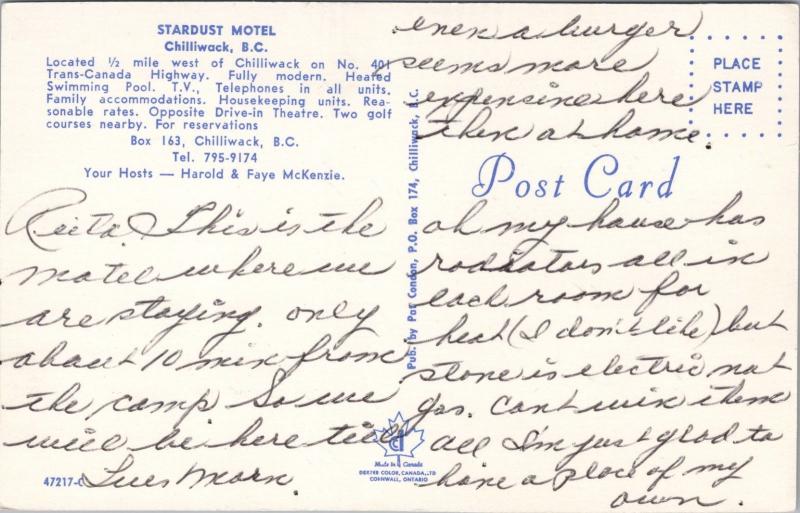 STARDUST MOTEL
Chilliwack, B.C.
Located ½ mile west of Chilliwack on No. 401
Trans-Canada Highway. Fully modern. Heated
Swimming Pool. T.V., Telephones in all units.
Family accommodations. Housekeeping units. Rea-
sonable rates. Opposite Drive-in Theatre. Two golf
courses nearby. For reservations
Box 163, Chilliwack, B.C.
Tel. 795-9174
Your Hosts — Harold & Faye McKenzie.
Reeta. This is the
motel where we
are staying. only
about 10 min from
the camp So we
will be here till
Tues Morn.
47217-C
Pub. by Pat Condon, P.O. Box 174, Chilliwack, B.C.
Made in Canada
DEXTER COLOR, CANADA, LTD
CORNWALL, ONTARIO
PLACE
STAMP
HERE
Post Card
oh my house has
radiators all in
each room for
heat (I don't like) but
stove is electric not
gas. Cant win them
all I'm just glad to
have a place of my
own.
even a burger
seems more
expensive here
then at home.